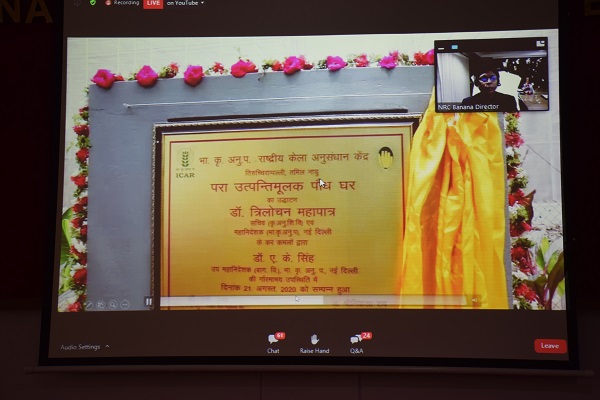 Recording LIVE on YouTube
NRC Banana Director
ICAR
भा. कृ. अनु.प. राष्ट्रीय केला अनुसंधान केंद्र
तिरुच्चिरापल्ली, तमिल नाडु
परा उत्पन्तिमूलक पौध घर
का उद्घाटन
डॉ. त्रिलोचन महापात्र
सचिव (कृ.अनु.शि.वि) एवं
महानिदेशक (भा.कृ.अनु.प), नई दिल्ली
के कर कमलों द्वारा
डॉ. ए. के. सिंह
उप महानिदेशक (बाग. वि.), भा. कृ. अनु. प., नई दिल्ली
की गौरवमय उपस्थिति में
दिनांक 21. अगस्त, 2020 को सम्पन्न हुआ
Audio Settings
61
Chat
Raise Hand
24
Q&A
Leave